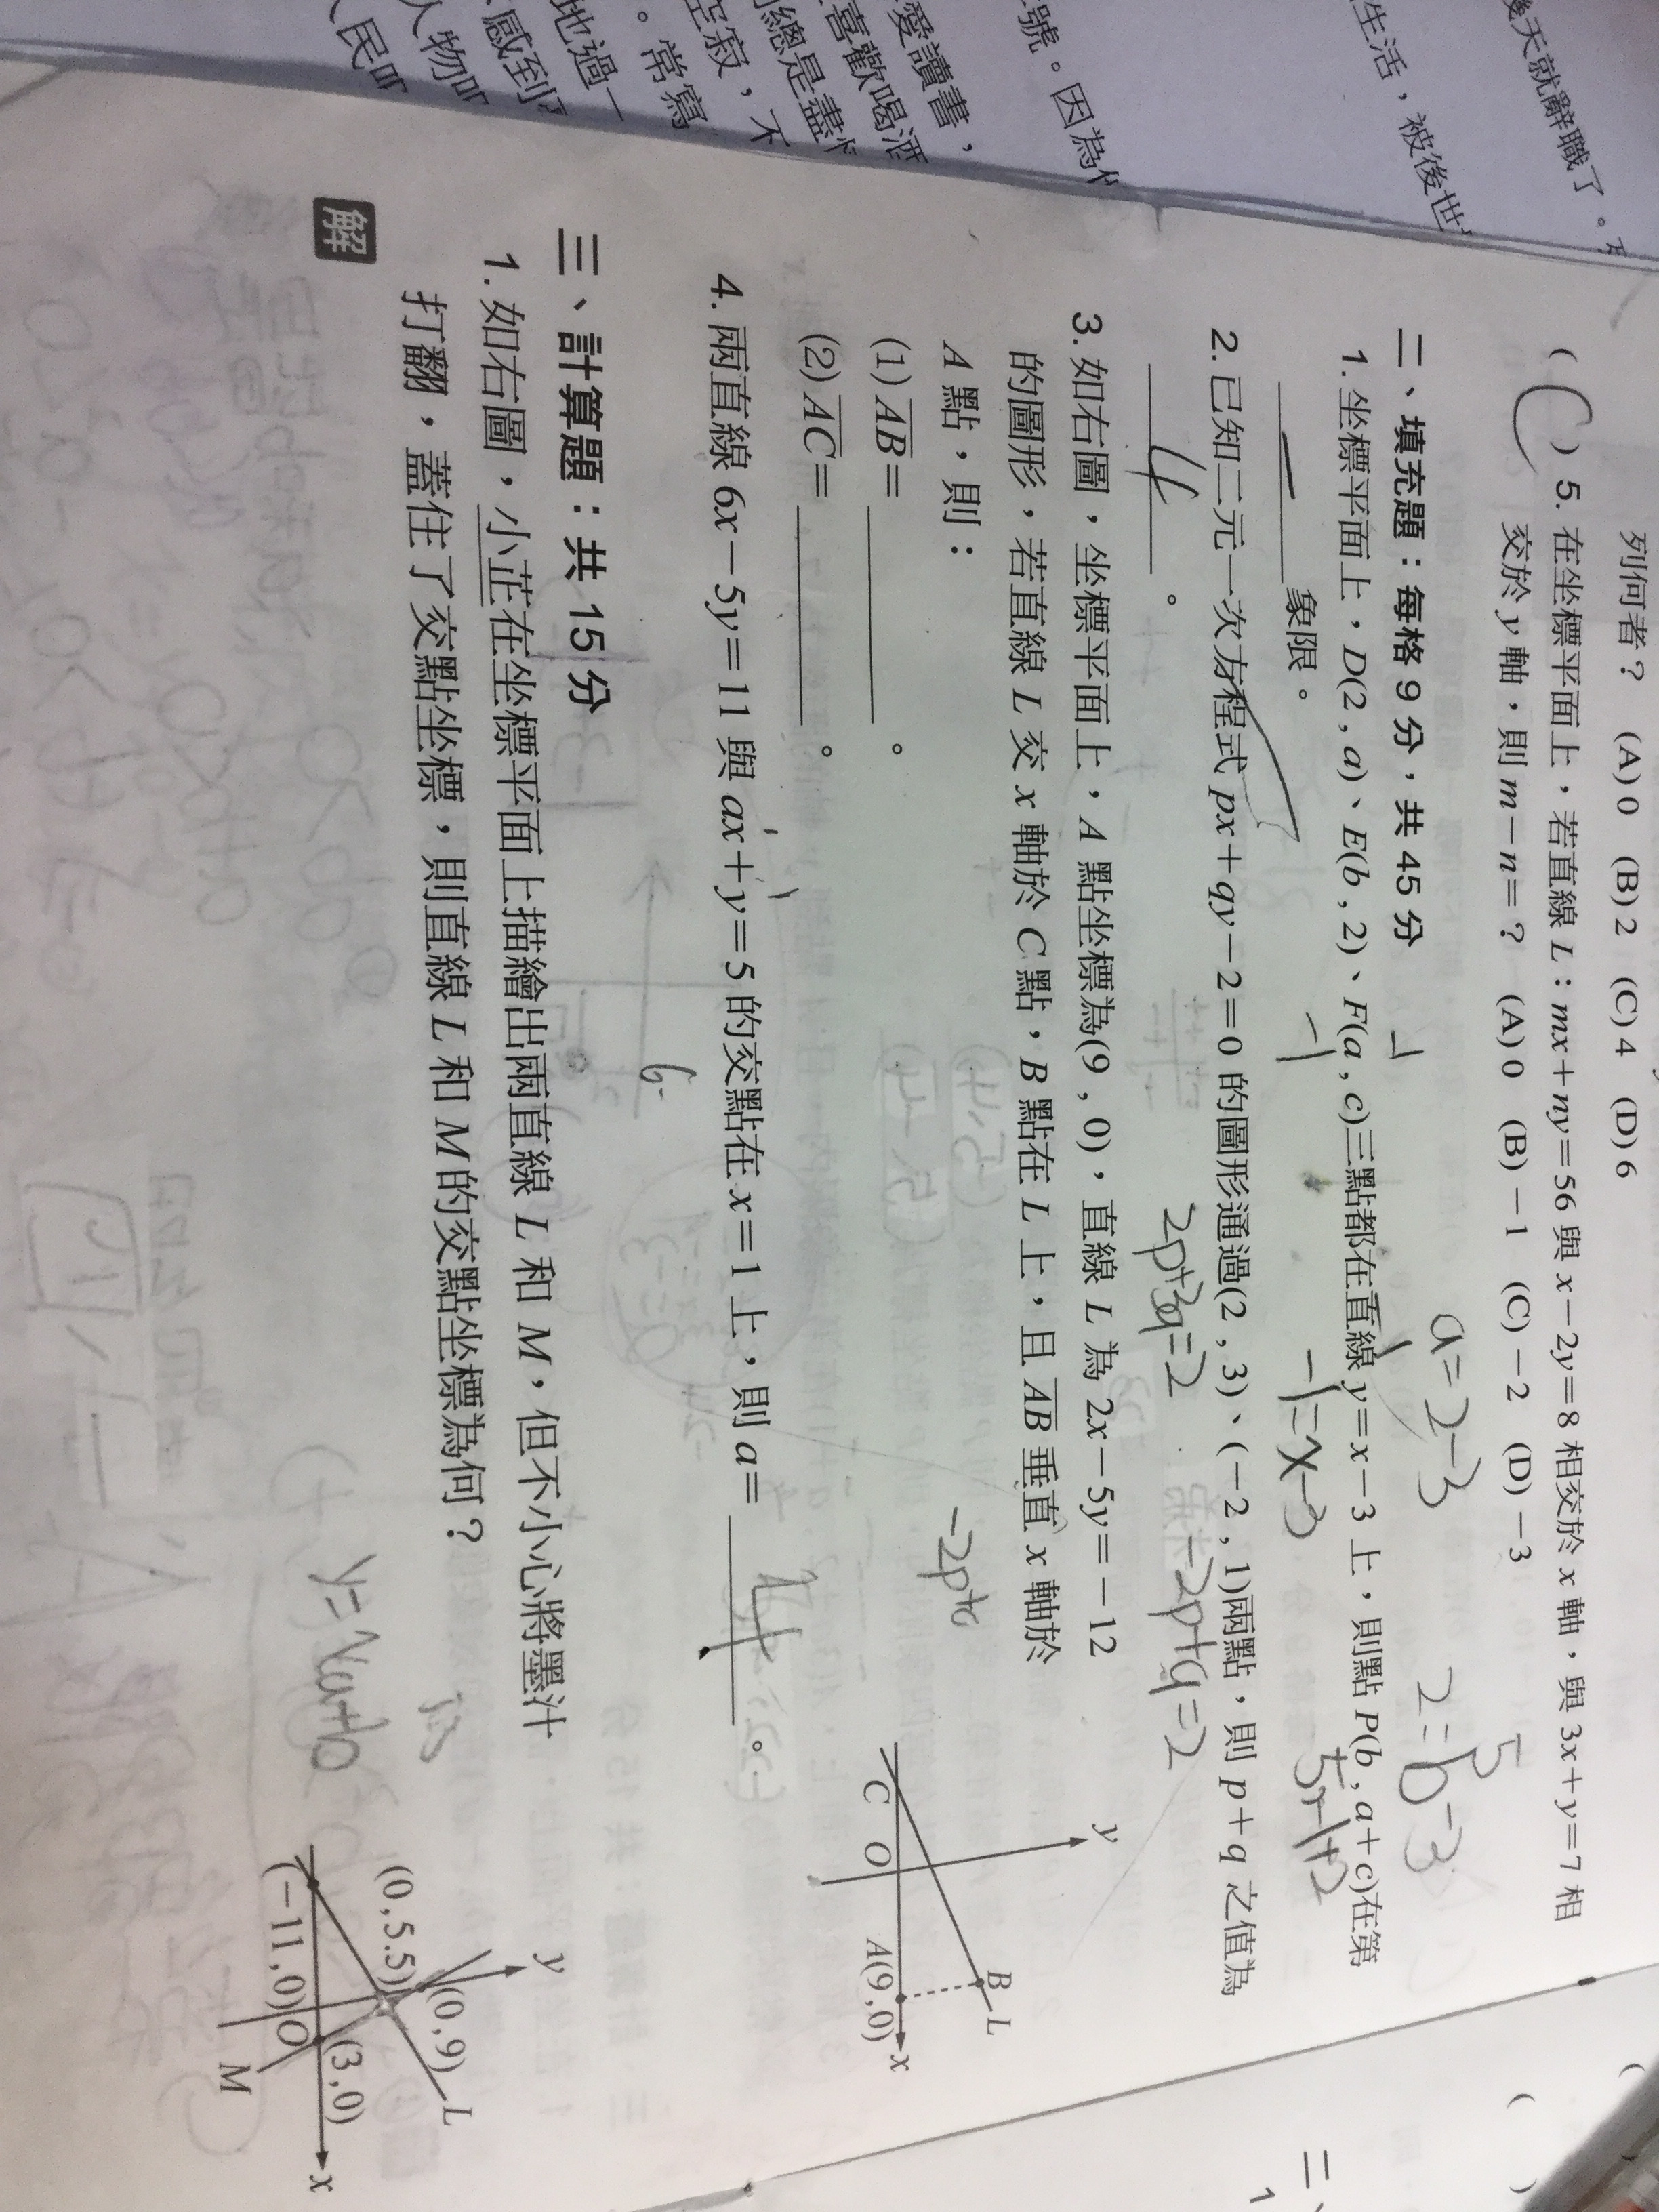 幾天就辭職了。
生活，被後世
號。因為
愛讀書，
喜歡喝酒
總是盡
空寂，不
。常寫
地過一
感到
人物
人民
列何者？ (A) 0 (B) 2 (C) 4 (D) 6
( C ) 5. 在坐標平面上，若直線 L：mx＋ny＝56 與 x－2y＝8 相交於 x 軸，與 3x＋y＝7 相
交於 y 軸，則 m－n＝？ (A) 0 (B)－1 (C)－2 (D)－3
a=2-3
2=b-3
5
二、填充題：每格 9 分，共 45 分
-1
1. 坐標平面上，D(2 , a)、E(b , 2)、F(a , c)三點都在直線 y＝x－3 上，則點 P(b , a＋c)在第
一 象限。
-1
-1=x-3
2. 已知二元一次方程式 px＋qy－2＝0 的圖形通過(2 , 3)、(－2 , 1)兩點，則 p＋q 之值為
4 。
2p+3q=2
-2p+q=2
3. 如右圖，坐標平面上，A 點坐標為(9 , 0)，直線 L 為 2x－5y＝－12
的圖形，若直線 L 交 x 軸於 C 點，B 點在 L 上，且 AB 垂直 x 軸於
A 點，則：
-2p+
(1) AB＝ 。
(2) AC＝ 。
y
B
L
C
O
A(9 , 0)
x
4. 兩直線 6x－5y＝11 與 ax＋y＝5 的交點在 x＝1 上，則 a＝ 。
6-
三、計算題：共 15 分
1. 如右圖，小芷在坐標平面上描繪出兩直線 L 和 M，但不小心將墨汁
打翻，蓋住了交點坐標，則直線 L 和 M 的交點坐標為何？
解
y
(0 , 9)
L
(0 , 5.5)
(3 , 0)
(－11 , 0)
O
x
M